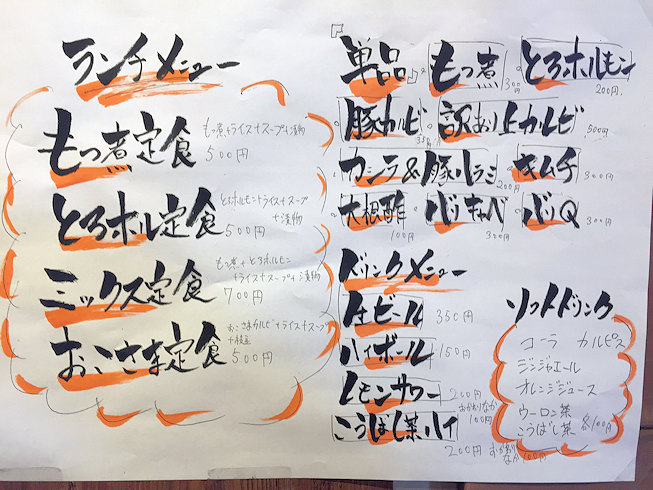 ランチメニュー
もつ煮定食
もつ煮+ライス+スープ+漬物
500円
とろホル定食
とろホルモン+ライス+スープ
+漬物
500円
ミックス定食
もつ煮+とろホルモン
+ライス+スープ+漬物
700円
おこさま定食
おこさまカルビ+ライス+スープ
500円
『単品』
もつ煮 300円
とろホルモン 200円
豚カルビ 訳あり上カルビ 500円
カシラ&豚ハラミ 200円 キムチ 300円
大根酢 100円 バリキャベ 300円 バリQ 300円
ドリンクメニュー
生ビール 350円
ハイボール 150円
レモンサワー 200円
おかわりなか
100円
こうばし茶ハイ
200円 おかわり
なか100円
ソフトドリンク
コーラ カルピス
ジンジャエール
オレンジジュース
ウーロン茶
こうばし茶 各100円